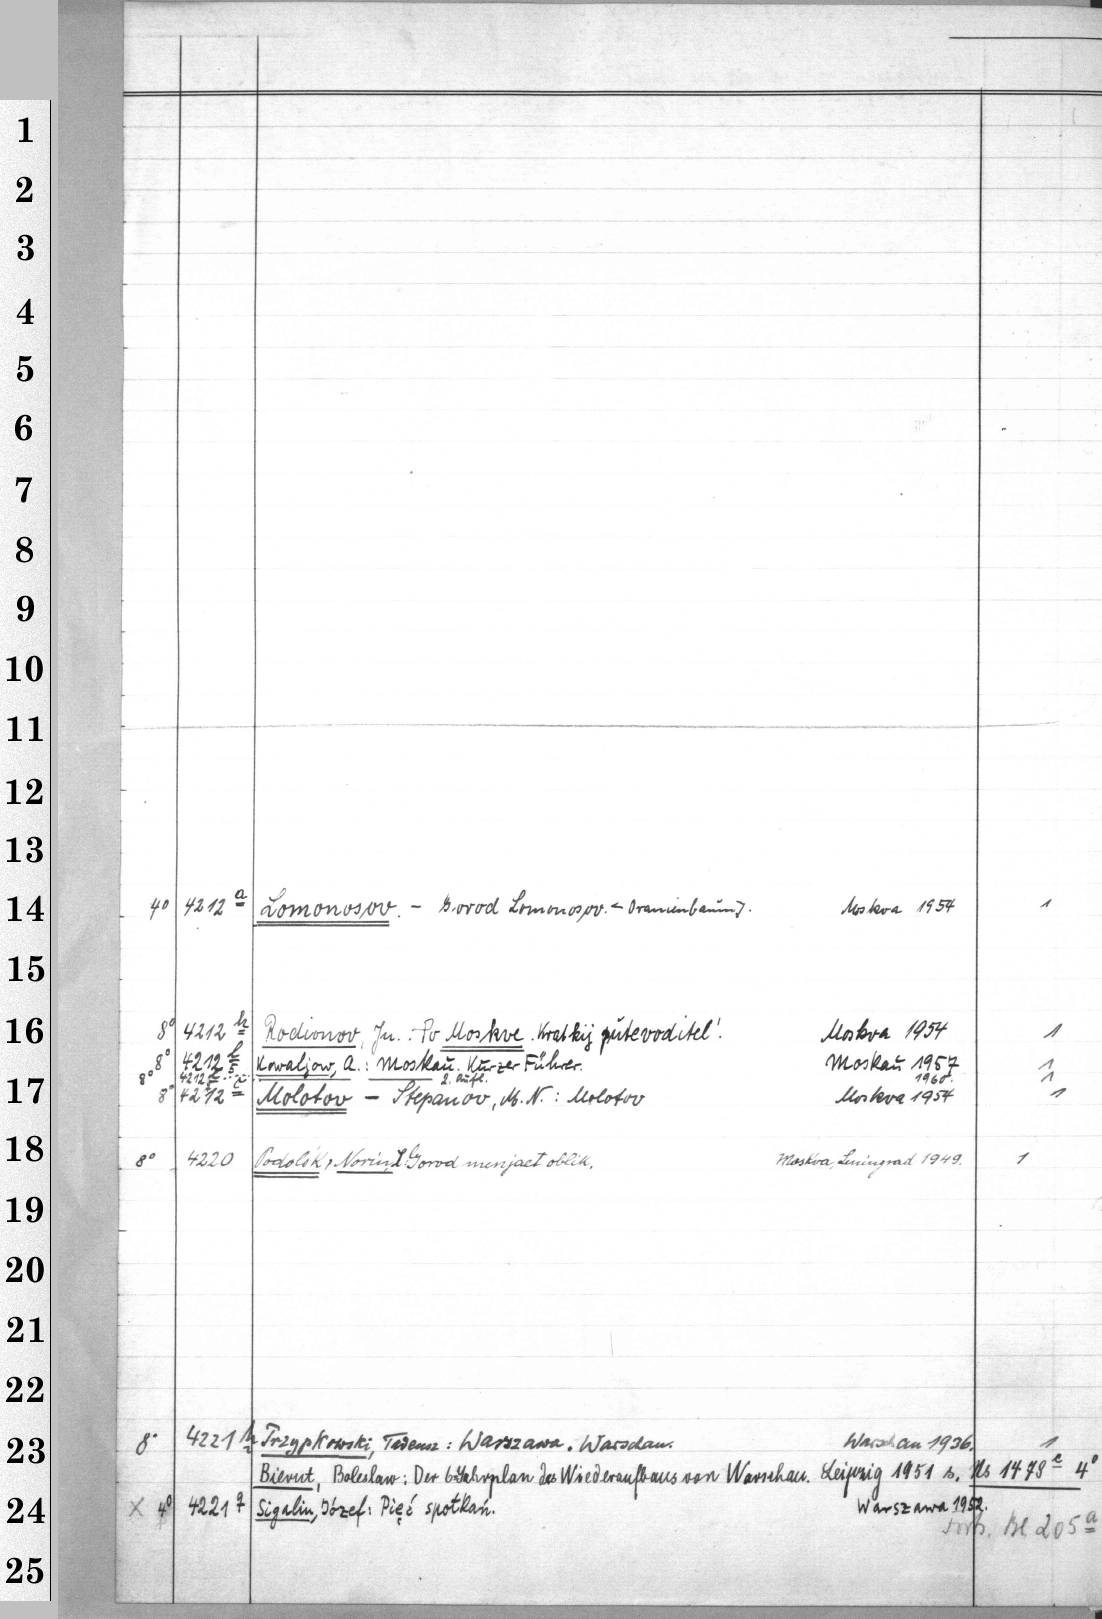 1
2
3
4
5
6
7
8
9
10
11
12
13
14 4° 4212 a Lomonosov. – Gorod Lomonosov. <Oranienbaum>. Moskva 1954 1
15
16 8° 4212 h Rodionov, Ju.: Po Moskve. Kratkij putevoditel'. Moskva 1954 1
8° 4212 Kowaljow, A.: Moskau. Kurzer Führer. Moskau 1957 1
8° 4212 2. Aufl. 1960. 1
17 8° 4212 i Molotov – Stepanov, M. N.: Molotov Moskva 1954 1
18 8° 4220 Podolsk, Norin, Gorod menjaet oblik. Moskva, Leningrad 1949. 1
19
20
21
22
23 8° 4221 Trzypkowski, Tadeusz: Warszawa. Warschau. Warschau 1936. 1
Bierut, Boleslaw: Der 6 Jahrplan des Wiederaufbaus von Warschau. Leipzig 1951 s. Us 1473 e 4°
24 X 4° 4221 q Sigalin, Józef: Pięć spotkań. Warszawa 1952.
Bl. 205 a
25